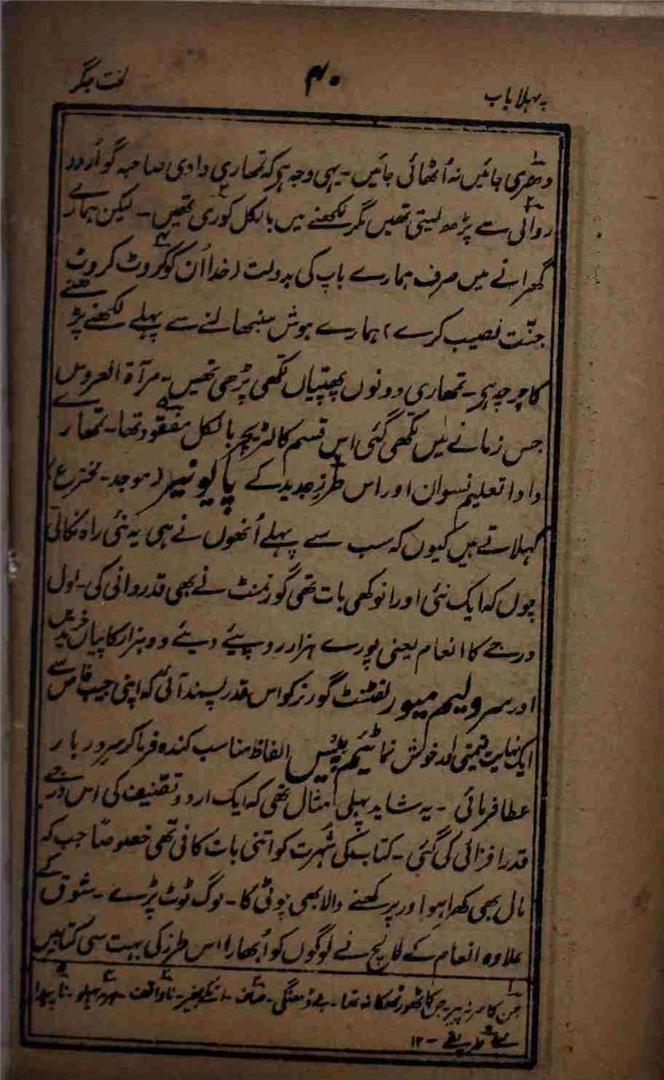 پہلا باب ۴۰ لخت جگر
دھری جائیں نہ اُٹھائی جائیں۔ یہی وجہ ہے کہ تمھاری دادی صاحبہ گو اُردو
روانی سے پڑھ لیتی تھیں مگر لکھنے میں بالکل کوری تھیں۔ لیکن ہمارے
گھرانے میں صرف ہمارے باپ کی بدولت (خدا اُن کو کروٹ کروٹ
جنّت نصیب کرے) ہمارے ہوش سنبھالنے سے پہلے لکھنے پڑھنے
کا چرچہ ہے۔ تمھاری دونوں پھپیاں لکھی پڑھی تھیں۔ مرآۃ العروس
جس زمانے میں لکھی گئی اس قسم کا لٹریچر بالکل مفقود تھا۔ تمھارے
دادا تعلیم نسواں اور اس طرز جدید کے پایونیر (موجد۔ مخترع)
کہلاتے ہیں کیوں کہ سب سے پہلے اُنھوں نے ہی یہ نئی راہ نکالی
چوں کہ ایک نئی اور انوکھی بات تھی گورنمنٹ نے بھی قدردانی کی۔ اول
درجے کا انعام یعنی پورے ہزار روپیئے دیئے دو ہزار کاپیاں خریدیں
اور سرولیم میور لفٹنٹ گورنر کو اس قدر پسند آئی کہ اپنی جیب خاص سے
ایک نہایت قیمتی اور خوش نما ٹیم پیس الفاظ مناسب کندہ فرما کر سر دربار
عطا فرمائی۔ یہ شاید پہلی مثال تھی کہ ایک اردو تصنیف کی اس درجے
قدر افزائی کی گئی۔ کتاب کی شہرت کو اتنی بات کافی تھی خصوصاً جب کہ
مال بھی کھرا ہو اور پرکھنے والا بھی چوٹی کا۔ لوگ ٹوٹ پڑے۔ شوق کے
علاوہ انعام کے لالچ نے لوگوں کو اُبھارا اس طرز کی بہت سی کتابیں
جن کا سر نہ پیر جن کا ٹھور ٹھکانہ تھا۔ بے ڈھنگی۔ صاف۔ ناواقف۔ ناپید
طریقے۔ ۱۲